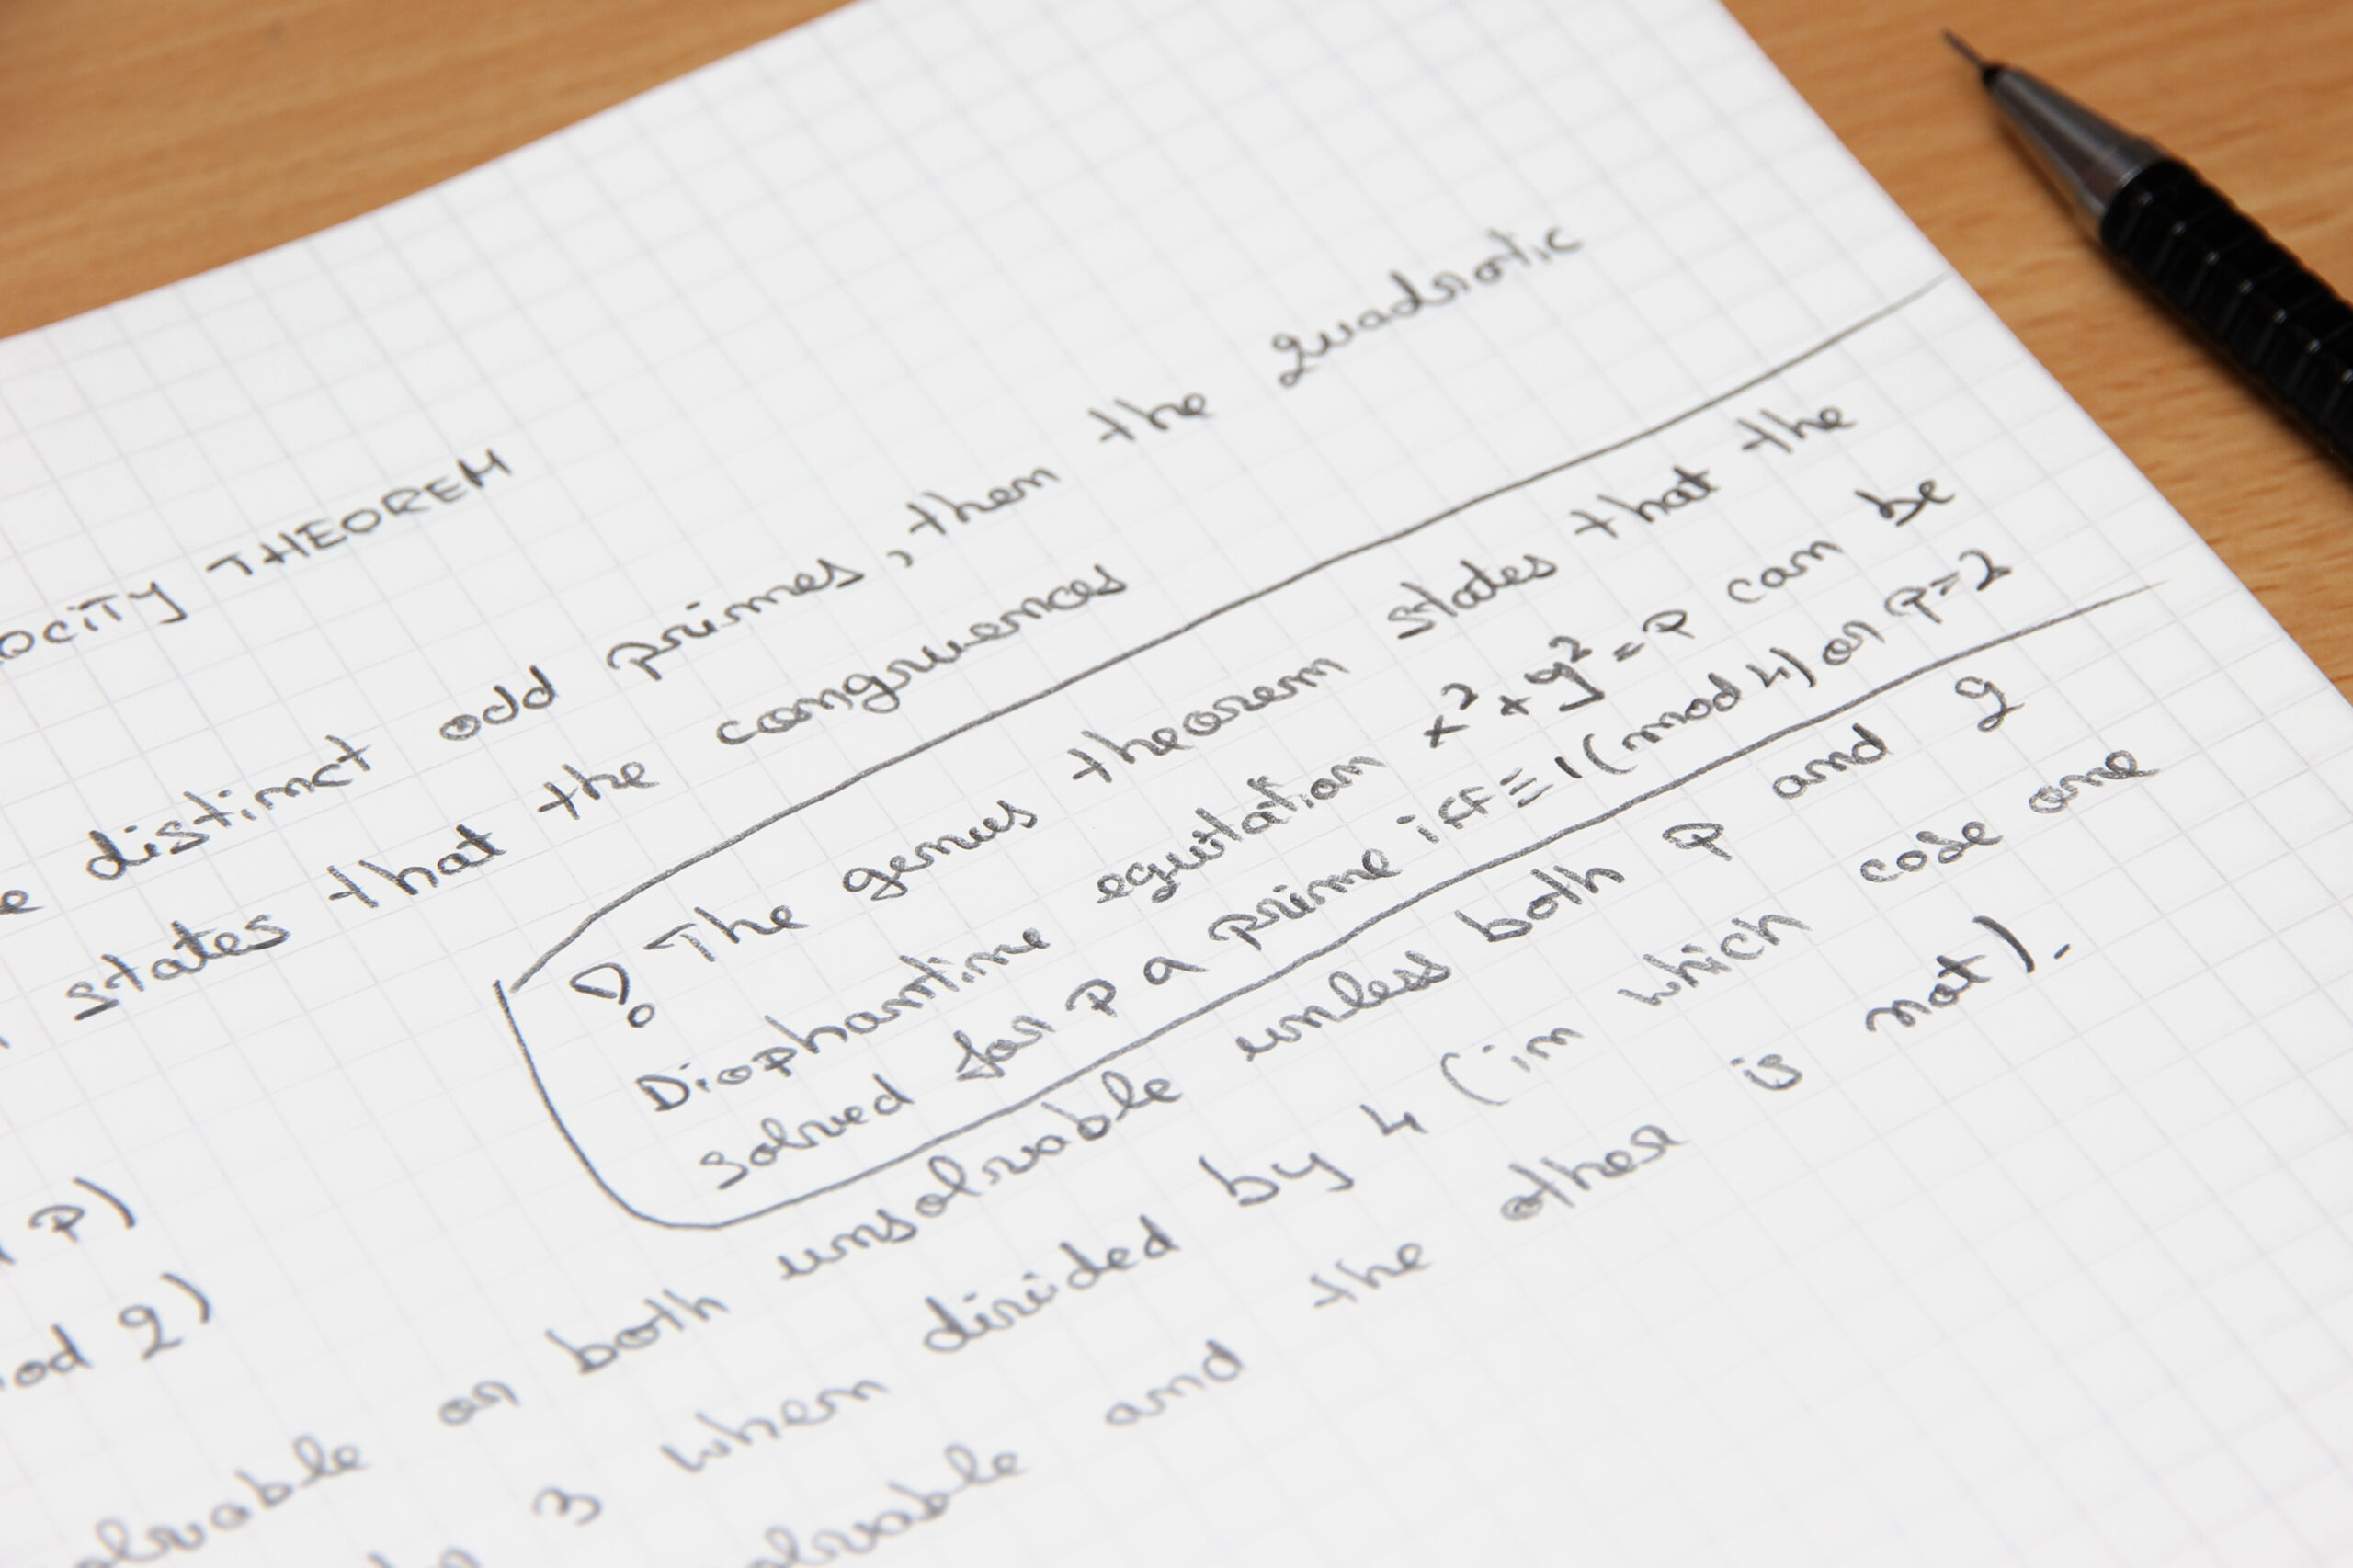 OCITY THEOREM
e distinct odd primes, then the quadratic
states that the congruences
! The genus theorem states that the
Diophantine equation x²+y²=p can be
solved for p a prime iff ≡1(mod 4) or p=2
p)
od q)
olvable or both unsolvable unless both p and q
3 when divided by 4 (in which case one
olvable and the other is not).